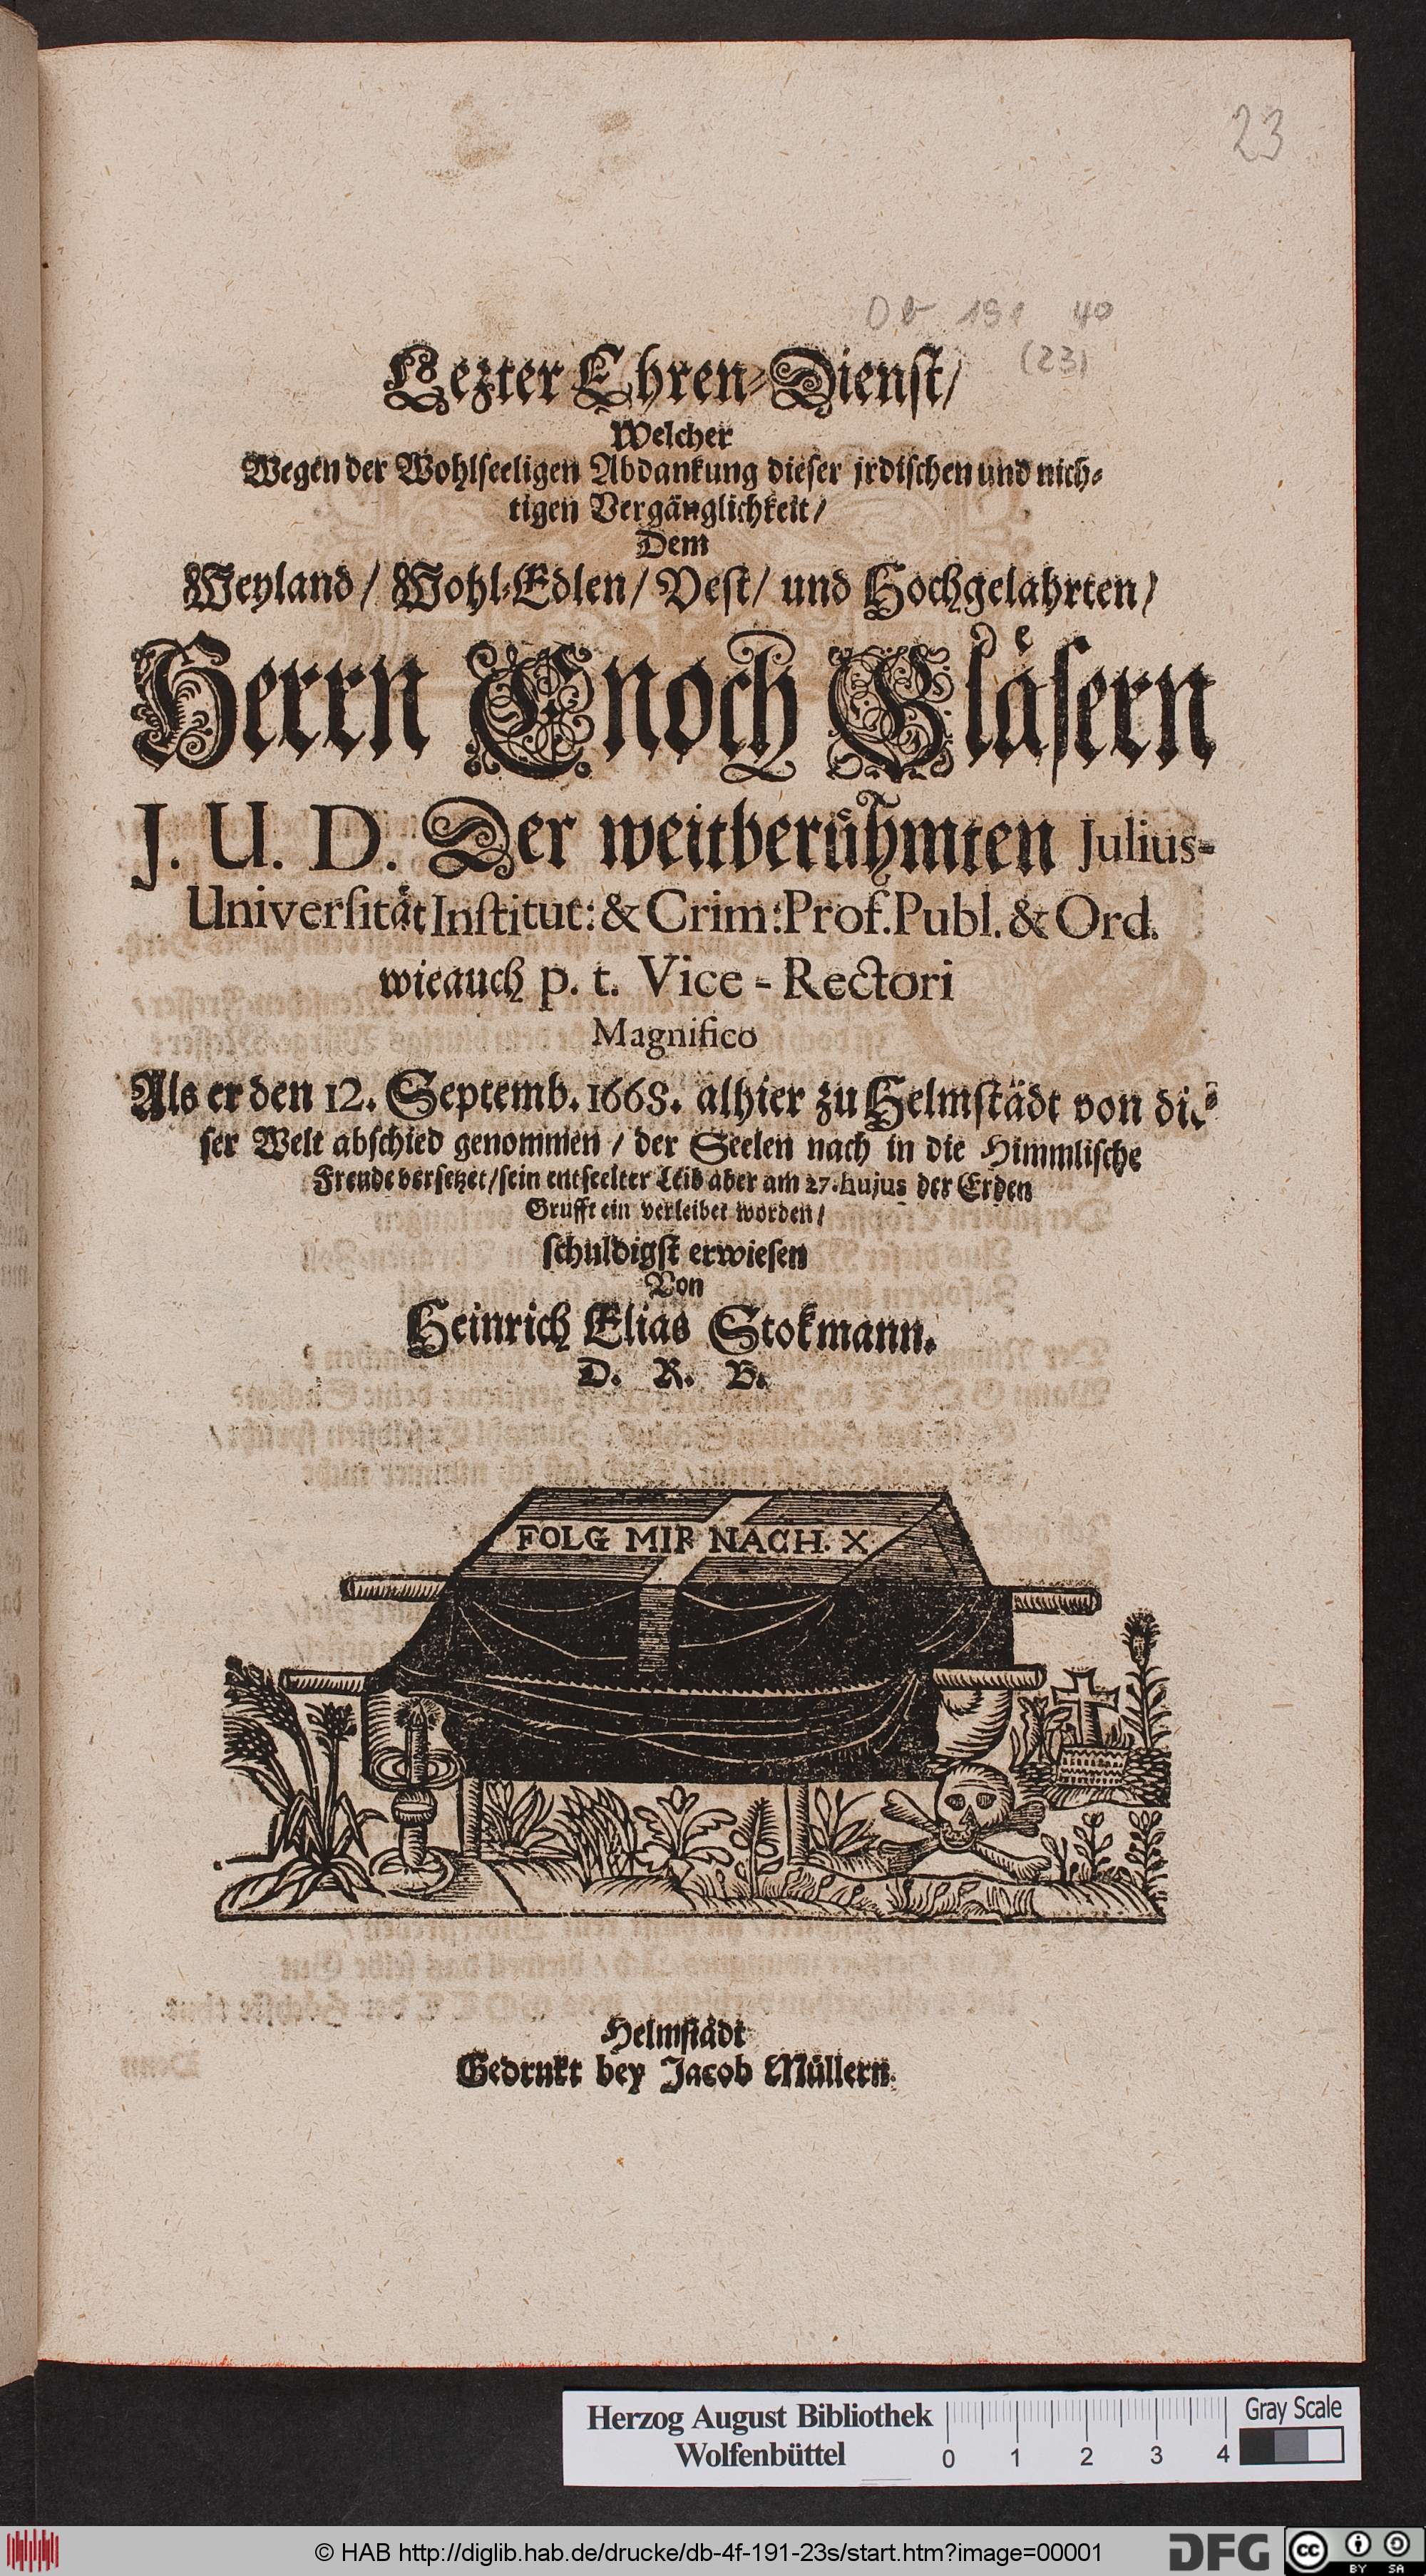 23
Db 191 4°
(23)
Lezter Ehren-Dienst/
Welcher
Wegen der Wohlseeligen Abdankung dieser jrdischen und nich-
tigen Vergänglichkeit/
Dem
Weyland/ Wohl-Edlen/ Vest/ und Hochgelahrten/
Herrn Enoch Gläsern
J. U. D. Der weitberühmten Julius-
Universität Institut: & Crim: Prof. Publ. & Ord.
wie auch p. t. Vice-Rectori
Magnifico
Als er den 12. Septemb. 1668. alhier zu Helmstädt von die-
ser Welt abschied genommen / der Seelen nach in die Himmlische
Freude versetzet/ sein entseelter Leib aber am 27. hujus der Erden
Grufft ein verleibet worden/
schuldigst erwiesen
Von
Heinrich Elias Stokmann.
D. R. B.
FOLG MIR NACH. X.
Helmstädt
Gedrukt bey Jacob Müllern.
Herzog August Bibliothek
Wolfenbüttel
0 1 2 3 4
Gray Scale
© HAB http://diglib.hab.de/drucke/db-4f-191-23s/start.htm?image=00001
DFG
cc BY SA